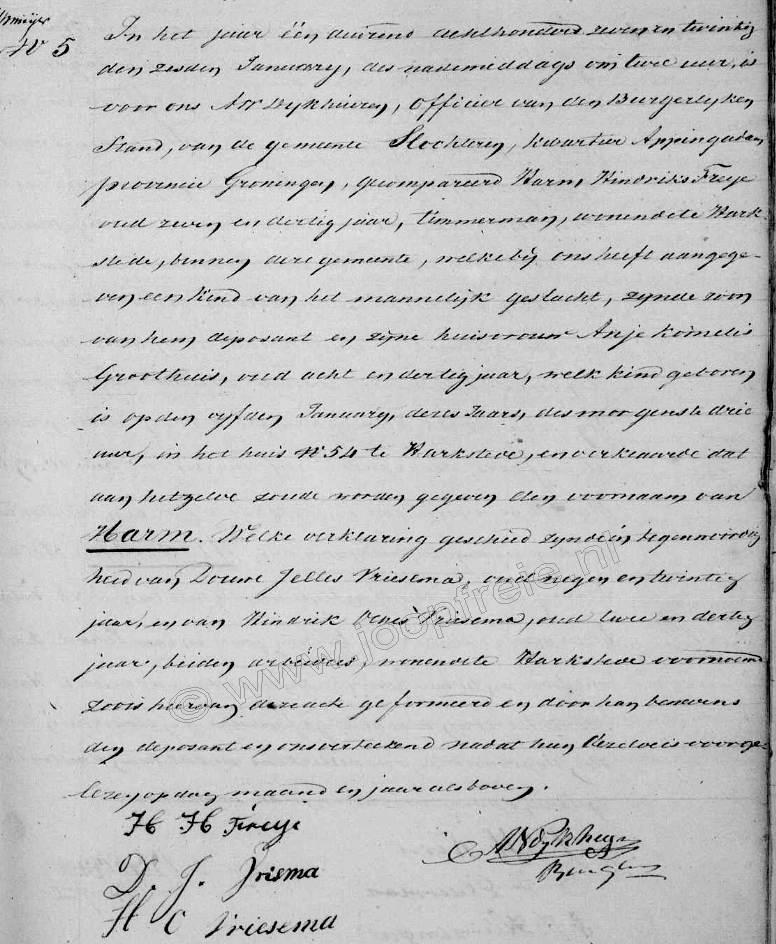 N 5
In het jaar één duizend achthonderd zeven en twintig
den zesden January, des nademiddags om twee uur, is
voor ons A W Dykhuizen, Officier van den Burgerlyken
Stand, van de gemeente Slochteren, kwartier Appingadam
provincie Groningen, gecompareerd Harm Hindriks Freye
oud zeven en dertig jaar, timmerman, wonende te Hark-
stede, binnen deze gemeente, welke bij ons heeft aangege-
ven een kind van het mannelijk geslacht, zynde zoon
van hem deposant en zyne huisvrouw Anje Kornelis
Groothuis, oud acht en dertig jaar, welk kind geboren
is op den vyfden January, dezes Jaars, des morgens te drie
uur, in het huis N 54 te Harkstede, en verklaarde dat
aan hetzelve zoude worden gegeven den voornaam van
Harm. Welke verklaring geschied zynde in tegenwoordig
heid van Douwe Jelles Vriesema, oud negen en twintig
jaar, en van Hindrik Vriesema, oud twee en dertig
jaar, beiden arbeiders, wonende te Harkstede voornoemd
zoo is hiervan deze acte geformeerd en door hun benevens
den deposant en ons verteekend nadat hun dezelve is voorge-
lezen op dag maand en jaar als boven.
H H Freije
D. J. Vriesma
H C Vriesema
© www.joopfreie.nl